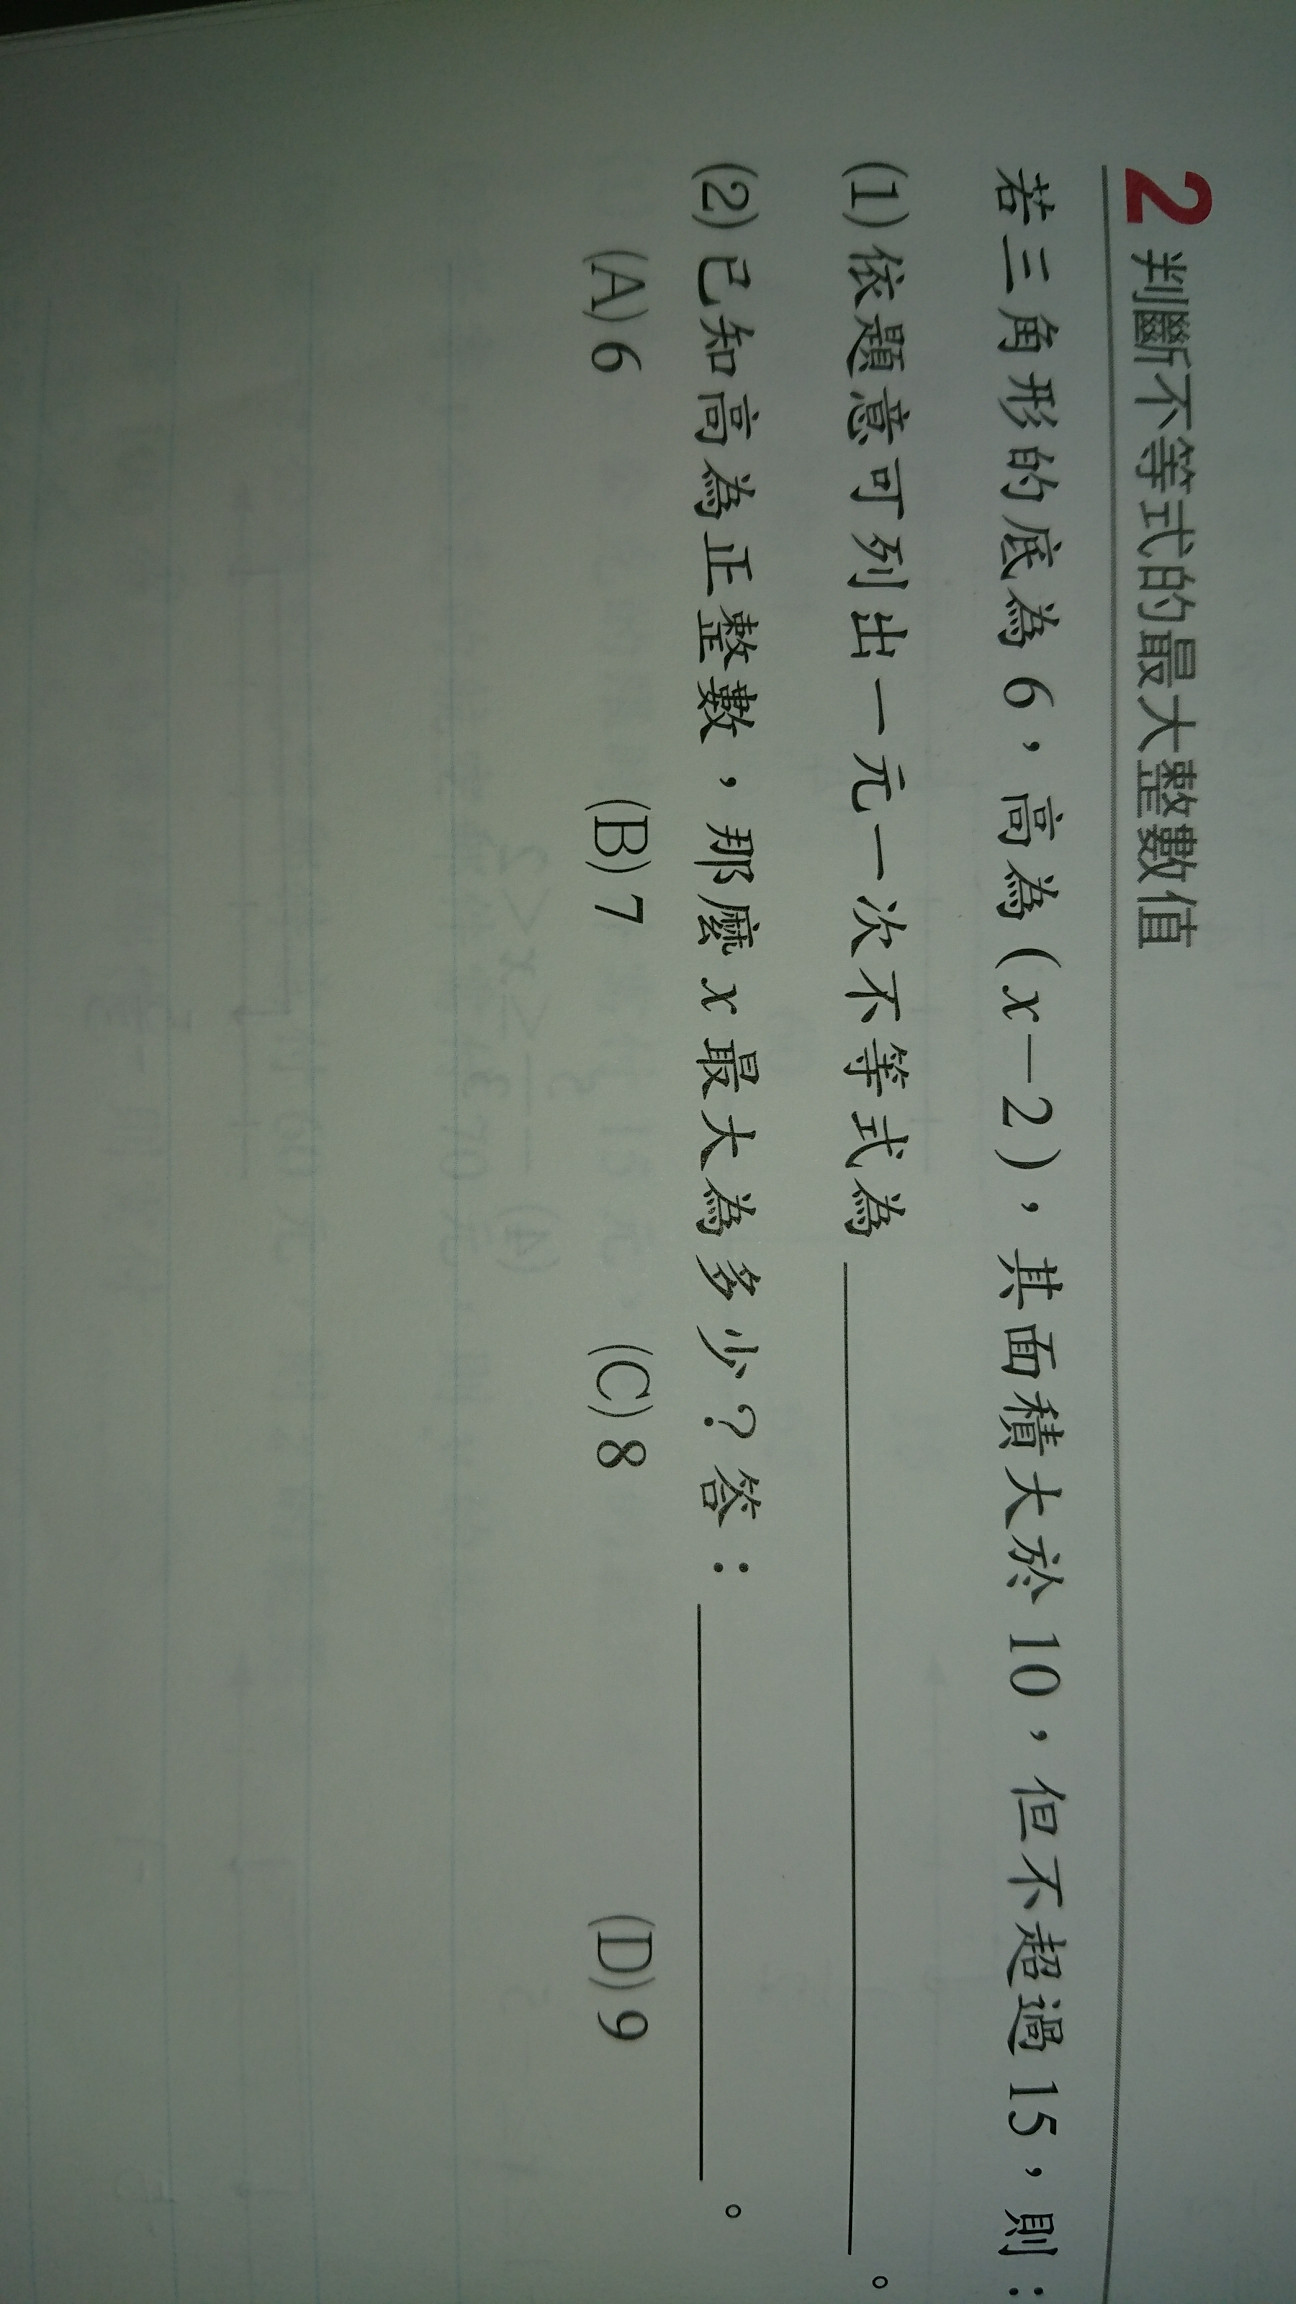 2 判斷不等式的最大整數值
若三角形的底為6，高為(x－2)，其面積大於10，但不超過15，則：
(1)依題意可列出一元一次不等式為＿＿＿＿＿＿＿＿。
(2)已知高為正整數，那麼x最大為多少？答：＿＿＿＿＿。
(A)6 (B)7 (C)8 (D)9